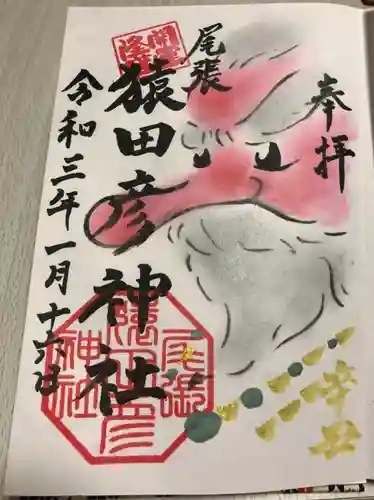 奉拝
尾張
猿田彦神社
令和三年一月十六日
辛丑
開運
尾張
猿田彦
神社